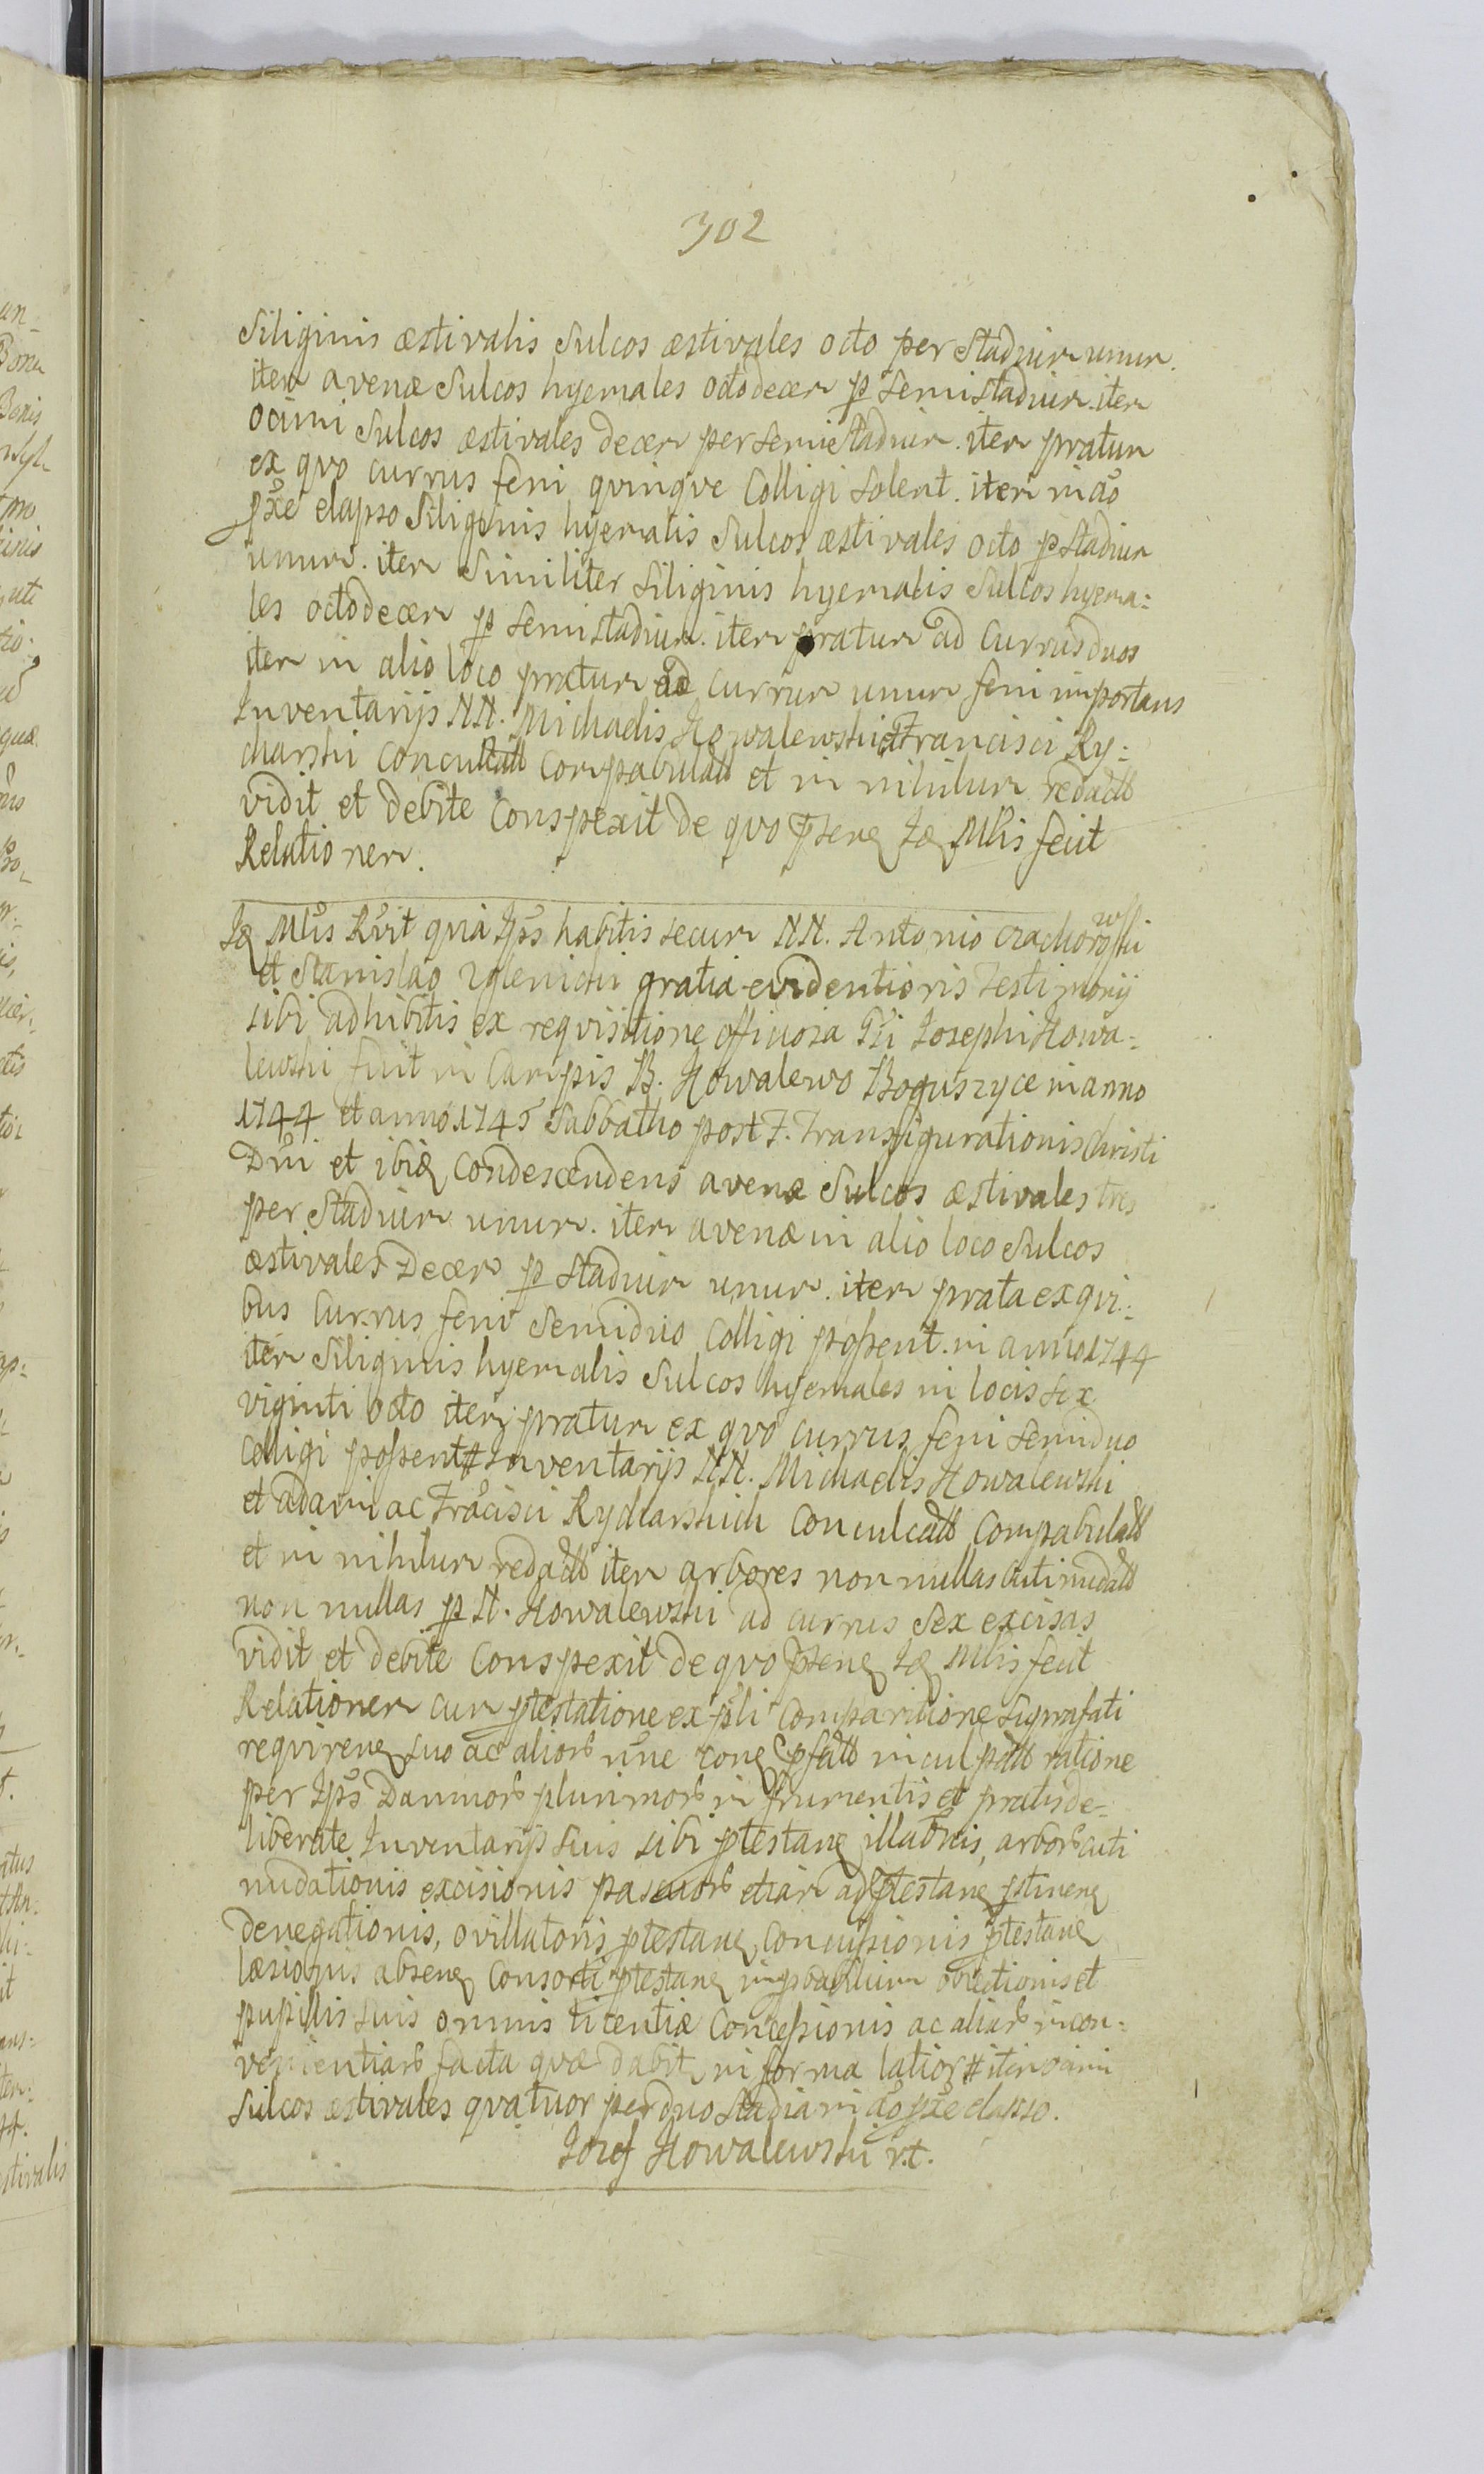 302
Siliginis æstivalis Sulcos æstivales octo per Stadium unum.
item avenæ Sulcos hyemales octodecem p Semistadium. item
Ocimi Sulcos æstivales decem per semistadium. item pratum
ex qvo currus feni qvinqve Colligi solent. item in ao
pxe elapso Siliginis hyemalis Sulcos æstivales octo p Stadium
unum. item Similiter Siliginis hyemalis Sulcos hyema:
les octodecem p semistadium. item pratum ad Currus duos
item in alio loco pratum ad Currum unum feni importans
Inventarijs NN. Michaelis Kowalewski et Francisci Ry:
charski Conculcatt Compabulatt et in nihilum redactt
vidit et debite Conspexit de qvo psens Id Mlis fecit
Relationem.
Id Mlis Rvit qvia Ips habitis secum NN. Antonio Czachorowski
et Stanislao Zglenicki gratia evidentioris Testimonij
sibi adhibitis ex reqvisitione officiosa Gsi Josephi Kowa:
lewski fuit in Campis B. Kowalewo Boguszyce in anno
1744 et anno 1745 Sabbatho post F. Transfigurationis Christi
Dni et ibid Condescendens avenæ Sulcos æstivales tres
per Stadium unum. item avenæ in alio loco Sulcos
æstivales Decem p Stadium unum. item prata ex qvi:
bus Currus feni Semiduo Colligi possent. in anno 1744
item Siliginis hyemalis Sulcos hyemales in locis sex
viginti octo item pratum ex qvo currus feni semiduo
Colligi possent # Inventarijs NN. Michaelis Kowalewski
et Adami ac Fracisci Rycharskich Conculcatt Compabulatt
et in nihilum redactt item arbores non nullas cutinudatt
non nullas p N. Kowalewski ad currus Sex excisas
vidit et debite Conspexit de qvo psens Id Mlis fecit
Relationem cum ptestatione ex psli Comparitione Suprafati
reqvirens suo ac alior nne cons psfatt inculpatt ratione
per Ips Damnor plurimor in frumentis et pratis de-
liberate Inventarijs Suis sibi ptestans illationis, arbor cuti
nudationis excisionis pascuor etiam ad ptestans ptinens
denegationis, ovillatoris ptestans, Concussionis ptestans
læsionis absens Consorti ptestans obiectionis et
pupillis suis omnis licentiæ Concessionis ac aliar incon:
venientiar facta qvæ dabit in forma latior # item ocimi
Sulcos æstivales qvatuor per duo Stadia in ao pxe elapso.
Jozef Kowalewski r.t.